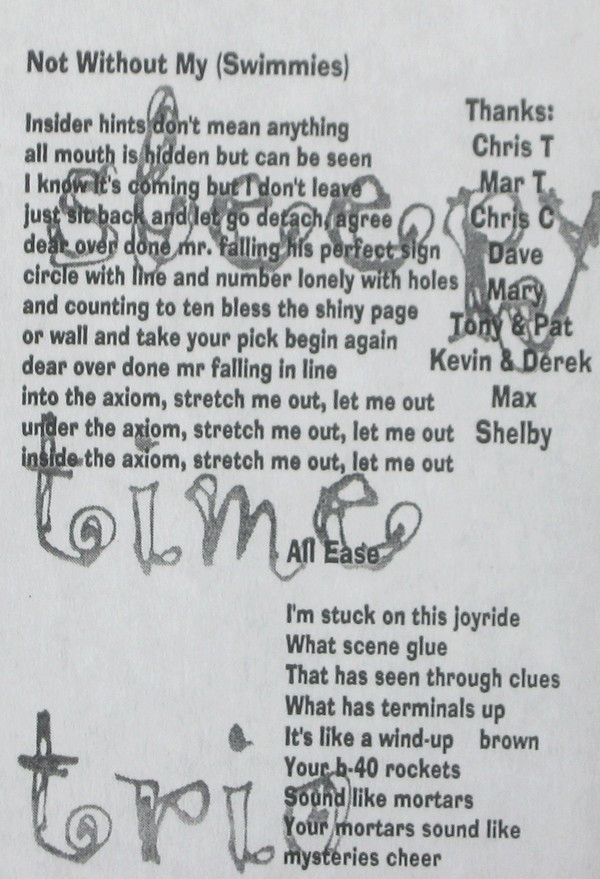 Not Without My (Swimmies)
Insider hints don't mean anything
all mouth is hidden but can be seen
I know it's coming but I don't leave
just sit back and let go detach, agree
dear over done mr. falling his perfect sign
circle with line and number lonely with holes
and counting to ten bless the shiny page
or wall and take your pick begin again
dear over done mr falling in line
into the axiom, stretch me out, let me out
under the axiom, stretch me out, let me out
inside the axiom, stretch me out, let me out
Thanks:
Chris T
Mar T
Chris C
Dave
Mary
Tony & Pat
Kevin & Derek
Max
Shelby
sleepy
time
trio
All Ease
I'm stuck on this joyride
What scene glue
That has seen through clues
What has terminals up
It's like a wind-up brown
Your b-40 rockets
Sound like mortars
Your mortars sound like
mysteries cheer